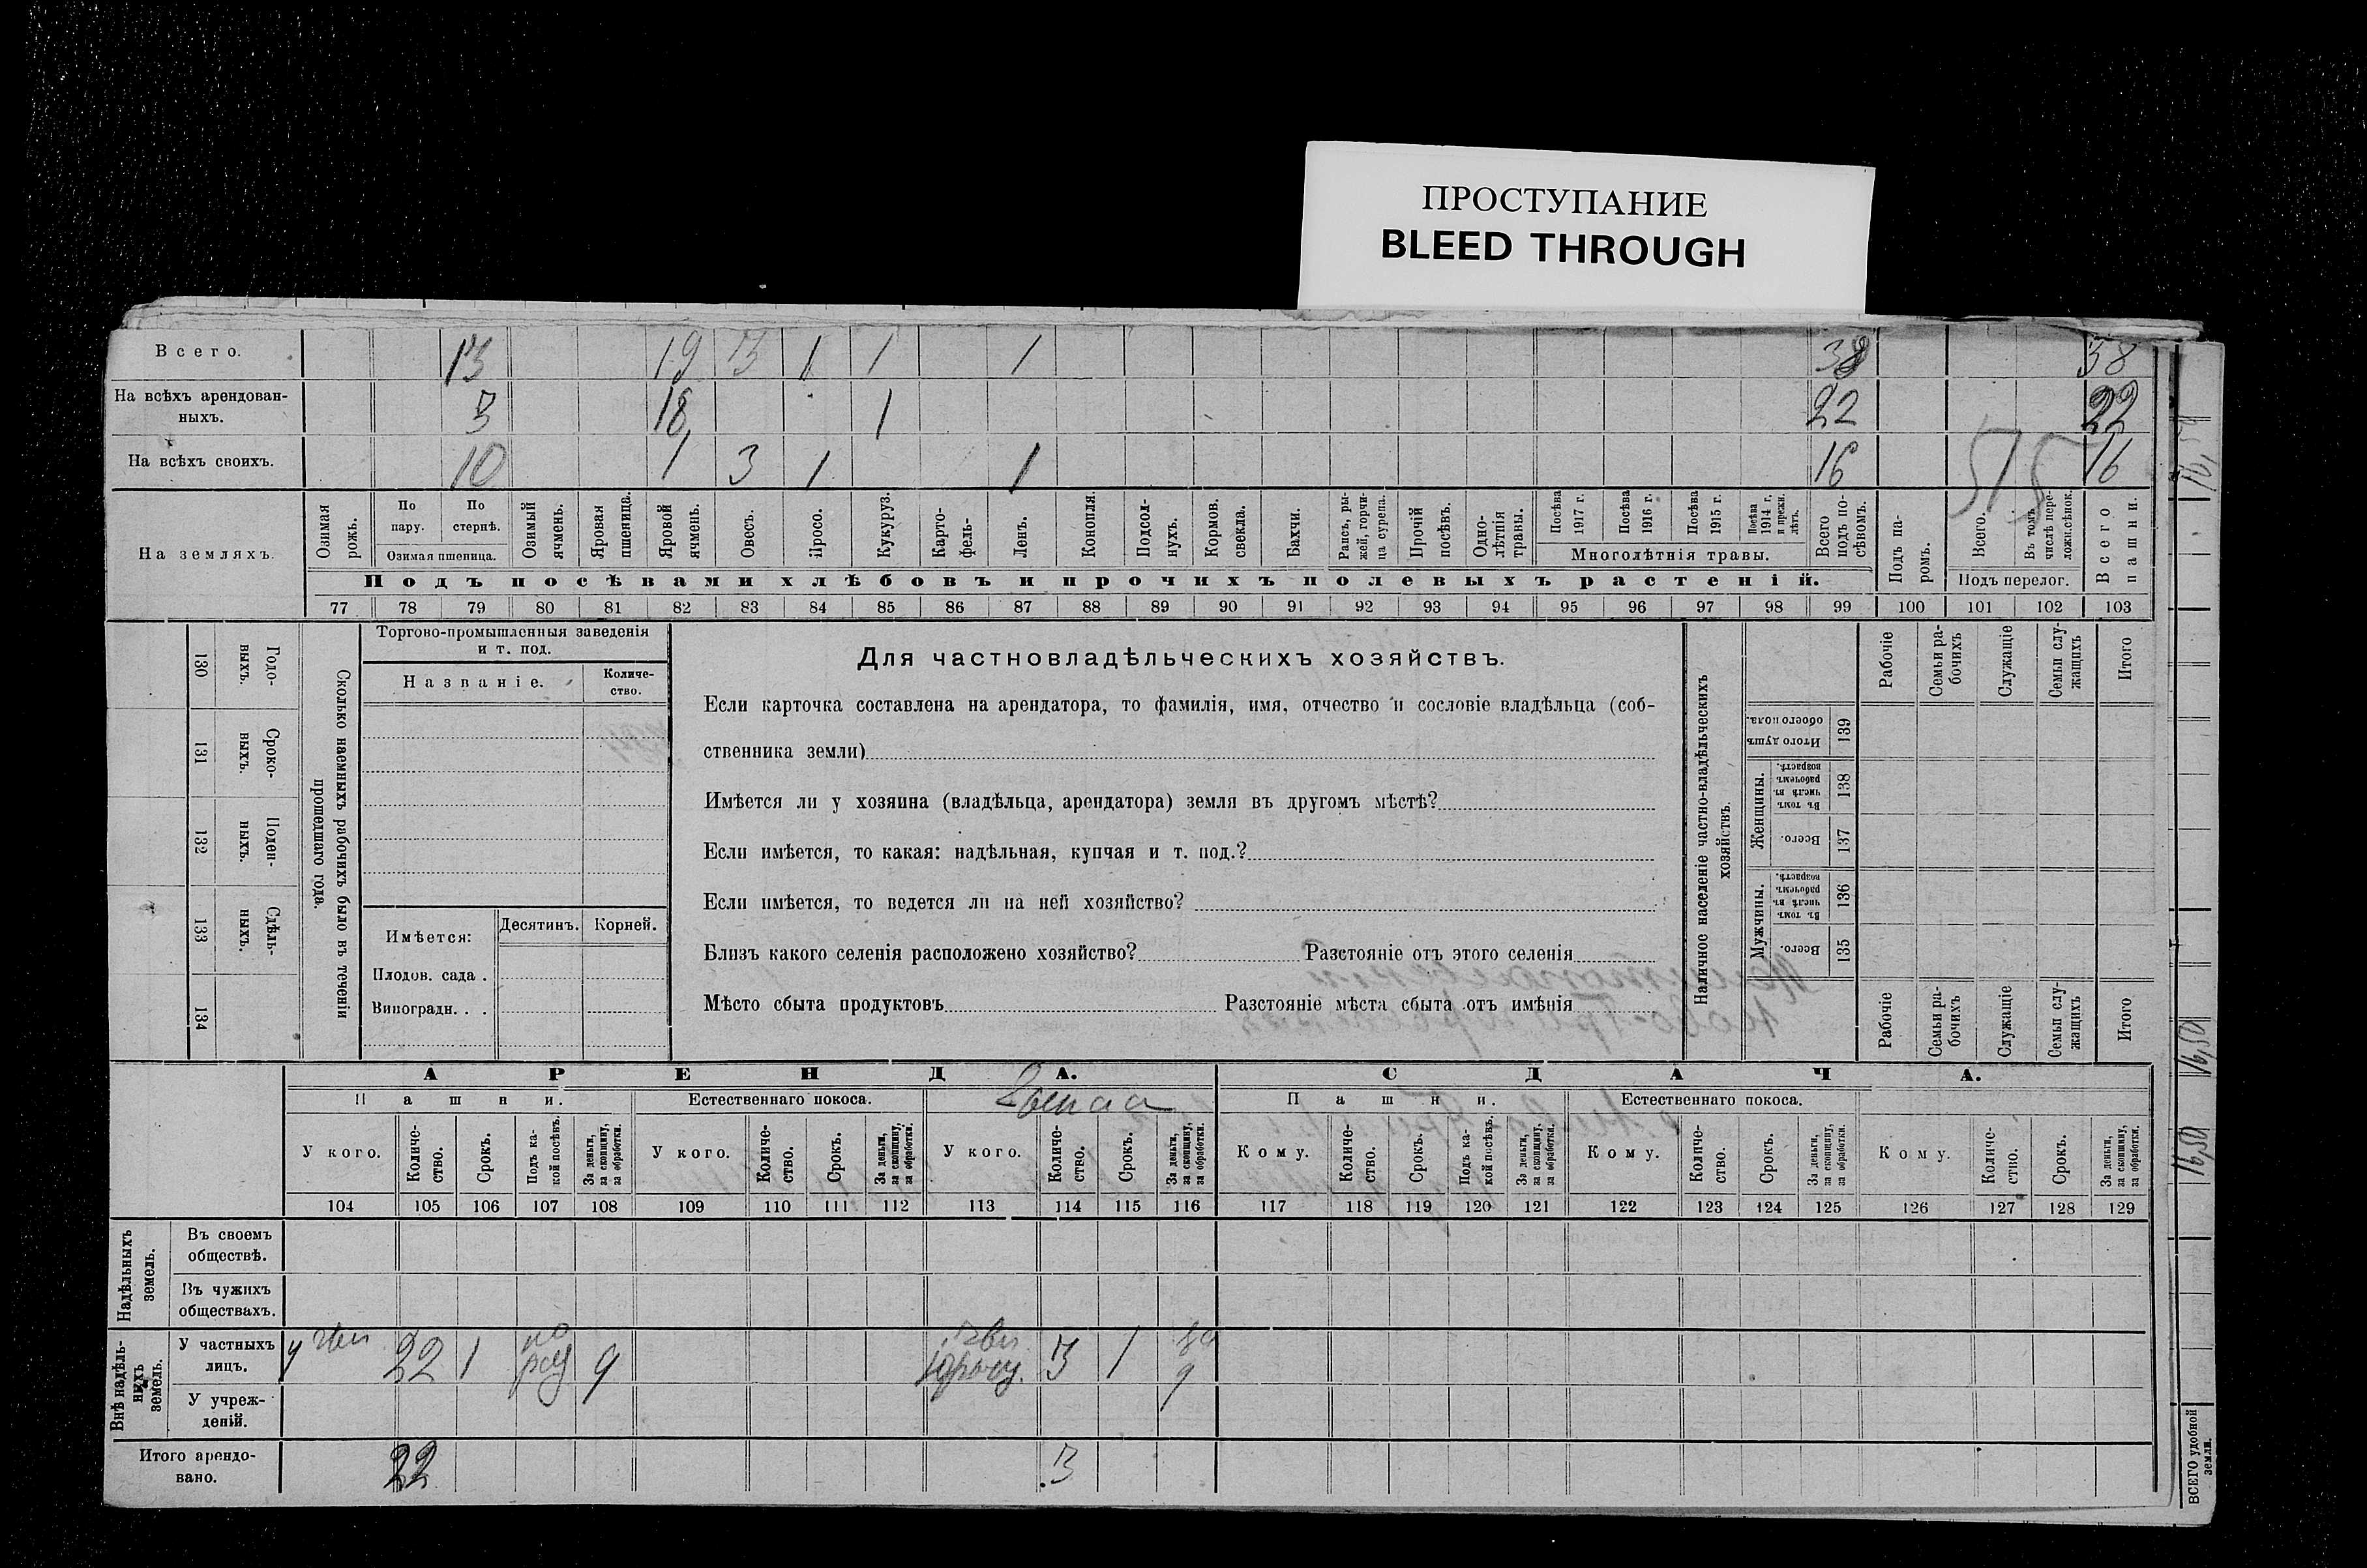 ПРОСТУПАНИЕ
BLEED THROUGH
Всего. 13 19 3 1 1 1 38 38
На всѣхъ арендован-
ныхъ. 3 18 1 22 22
На всѣхъ своихъ. 10 1 3 1 1 16 16
515
На земляхъ.
Озимая рожь.
По пару.
По стернѣ.
Озимая пшеница.
Озимый ячмень.
Яровая пшеница.
Яровой ячмень.
Овесъ.
Просо.
Кукуруз.
Карто-
фель.
Ленъ.
Конопля.
Подсол-
нухъ.
Кормов. свекла.
Бахчи.
Рапсъ, ры-
жей, горчи-
ца сурепа.
Прочій посѣвъ.
Одно-
лѣтнія травы.
Посѣва 1917 г.
Посѣва 1916 г.
Посѣва 1915 г.
Посѣва 1914 г. и прежн. лѣтъ.
Многолѣтнія травы.
Всего подъ по-
сѣвомъ.
Подъ па-
ромъ.
Всего.
Въ томъ числѣ пере-
ложн.сѣнок.
Подъ перелог.
Всего пашни.
Подъ посѣвами хлѣбовъ и прочихъ полевыхъ растеній.
77 78 79 80 81 82 83 84 85 86 87 88 89 90 91 92 93 94 95 96 97 98 99 100 101 102 103
Годо-
выхъ.
130
Сроко-
выхъ.
131
Поден-
ныхъ.
132
Сдѣль-
ныхъ.
133
134
Сколько наемныхъ рабочихъ было въ теченіи
прошедшаго года.
Торгово-промышленныя заведенія
и т. под.
Названіе.
Количе-
ство.
Имѣется:
Десятинъ. Корней.
Плодов. сада .
Виноградн. . .
Для частновладѣльческихъ хозяйствъ.
Если карточка составлена на арендатора, то фамилія, имя, отчество и сословіе владѣльца (соб-
ственника земли)
Имѣется ли у хозяина (владѣльца, арендатора) земля въ другомъ мѣстѣ?
Если имѣется, то какая: надѣльная, купчая и т. под.?
Если имѣется, то ведется ли на ней хозяйство?
Близъ какого селенія расположено хозяйство? Разстояніе отъ этого селенія
Мѣсто сбыта продуктовъ Разстояніе мѣста сбыта отъ имѣнія
Наличное населеніе частно-владѣльческихъ
хозяйствъ.
Рабочіе
Семьи ра-
бочихъ
Служащіе
Семьи слу-
жащихъ
Итого
Итого душъ
обоего пола.
139
Женщины.
Въ томъ числѣ въ рабочемъ возрастѣ.
138
Всего.
137
Мужчины.
Въ томъ числѣ въ рабочемъ возрастѣ.
136
Всего.
135
Рабочіе
Семьи ра-
бочихъ
Служащіе
Семьи слу-
жащихъ
Итого
АРЕНДА. СДАЧА.
Пашни. Естественнаго покоса. Пашни. Естественнаго покоса.
У кого.
Количе-
ство.
Срокъ.
Подъ ка-
кой посѣвъ.
За деньги, за скопщину, за обработки.
У кого.
Количе-
ство.
Срокъ.
За деньги, за скопщину, за обработки.
У кого.
Количе-
ство.
Срокъ.
За деньги, за скопщину, за обработки.
Кому.
Количе-
ство.
Срокъ.
Подъ ка-
кой посѣвъ.
За деньги, за скопщину, за обработки.
Кому.
Количе-
ство.
Срокъ.
За деньги, за скопщину, за обработки.
Кому.
Количе-
ство.
Срокъ.
За деньги, за скопщину, за обработки.
104 105 106 107 108 109 110 111 112 113 114 115 116 117 118 119 120 121 122 123 124 125 126 127 128 129
Надѣльныхъ
земель.
Въ своемъ
обществѣ.
Въ чужихъ
обществахъ.
Внѣ надѣль-
ныхъ
земель.
У частныхъ
лицъ. 22 1 9 3 1 9
У учреж-
деній.
Итого арендо-
вано. 22 3
16,50
16,50
16,50
ВСЕГО удобной
земли.